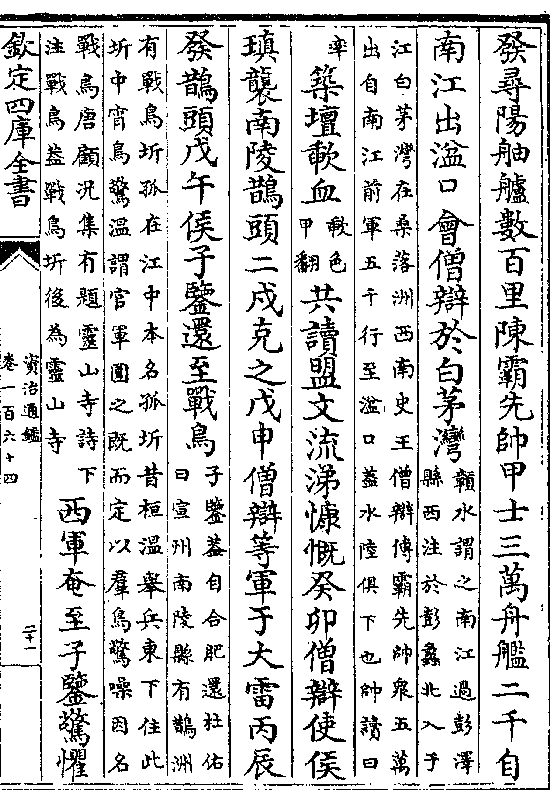 發尋陽舳艫數百里陳霸先帥甲士三萬舟艦二千自
南江出湓口會僧辯於白茅灣
贑水謂之南江過彭澤
縣西注於彭蠡北入于
江白茅灣在桑落洲西南史王僧辯傳霸先帥衆五萬
出自南江前軍五千行至湓口蓋水陸俱下也帥讀曰
率
築壇歃血
歃色
甲翻
共讀盟文流涕慷慨癸卯僧辯使侯
瑱襲南陵鵲頭二戍克之戊申僧辯等軍于大雷丙辰
發鵲頭戊午侯子鑒還至戰鳥
子鑒蓋自合肥還杜佑
曰宣州南陵縣有鵲洲
有戰鳥圻孤在江中本名孤圻昔桓溫舉兵東下住此
圻中宵鳥驚溫謂官軍圍之既而定以羣鳥驚噪因名
戰鳥唐顧況集有題靈山寺詩下
注戰鳥蓋戰鳥圻後為靈山寺
西軍奄至子鑒驚懼
欽定四庫全書
資治通鑑
卷一百六十四
二十一